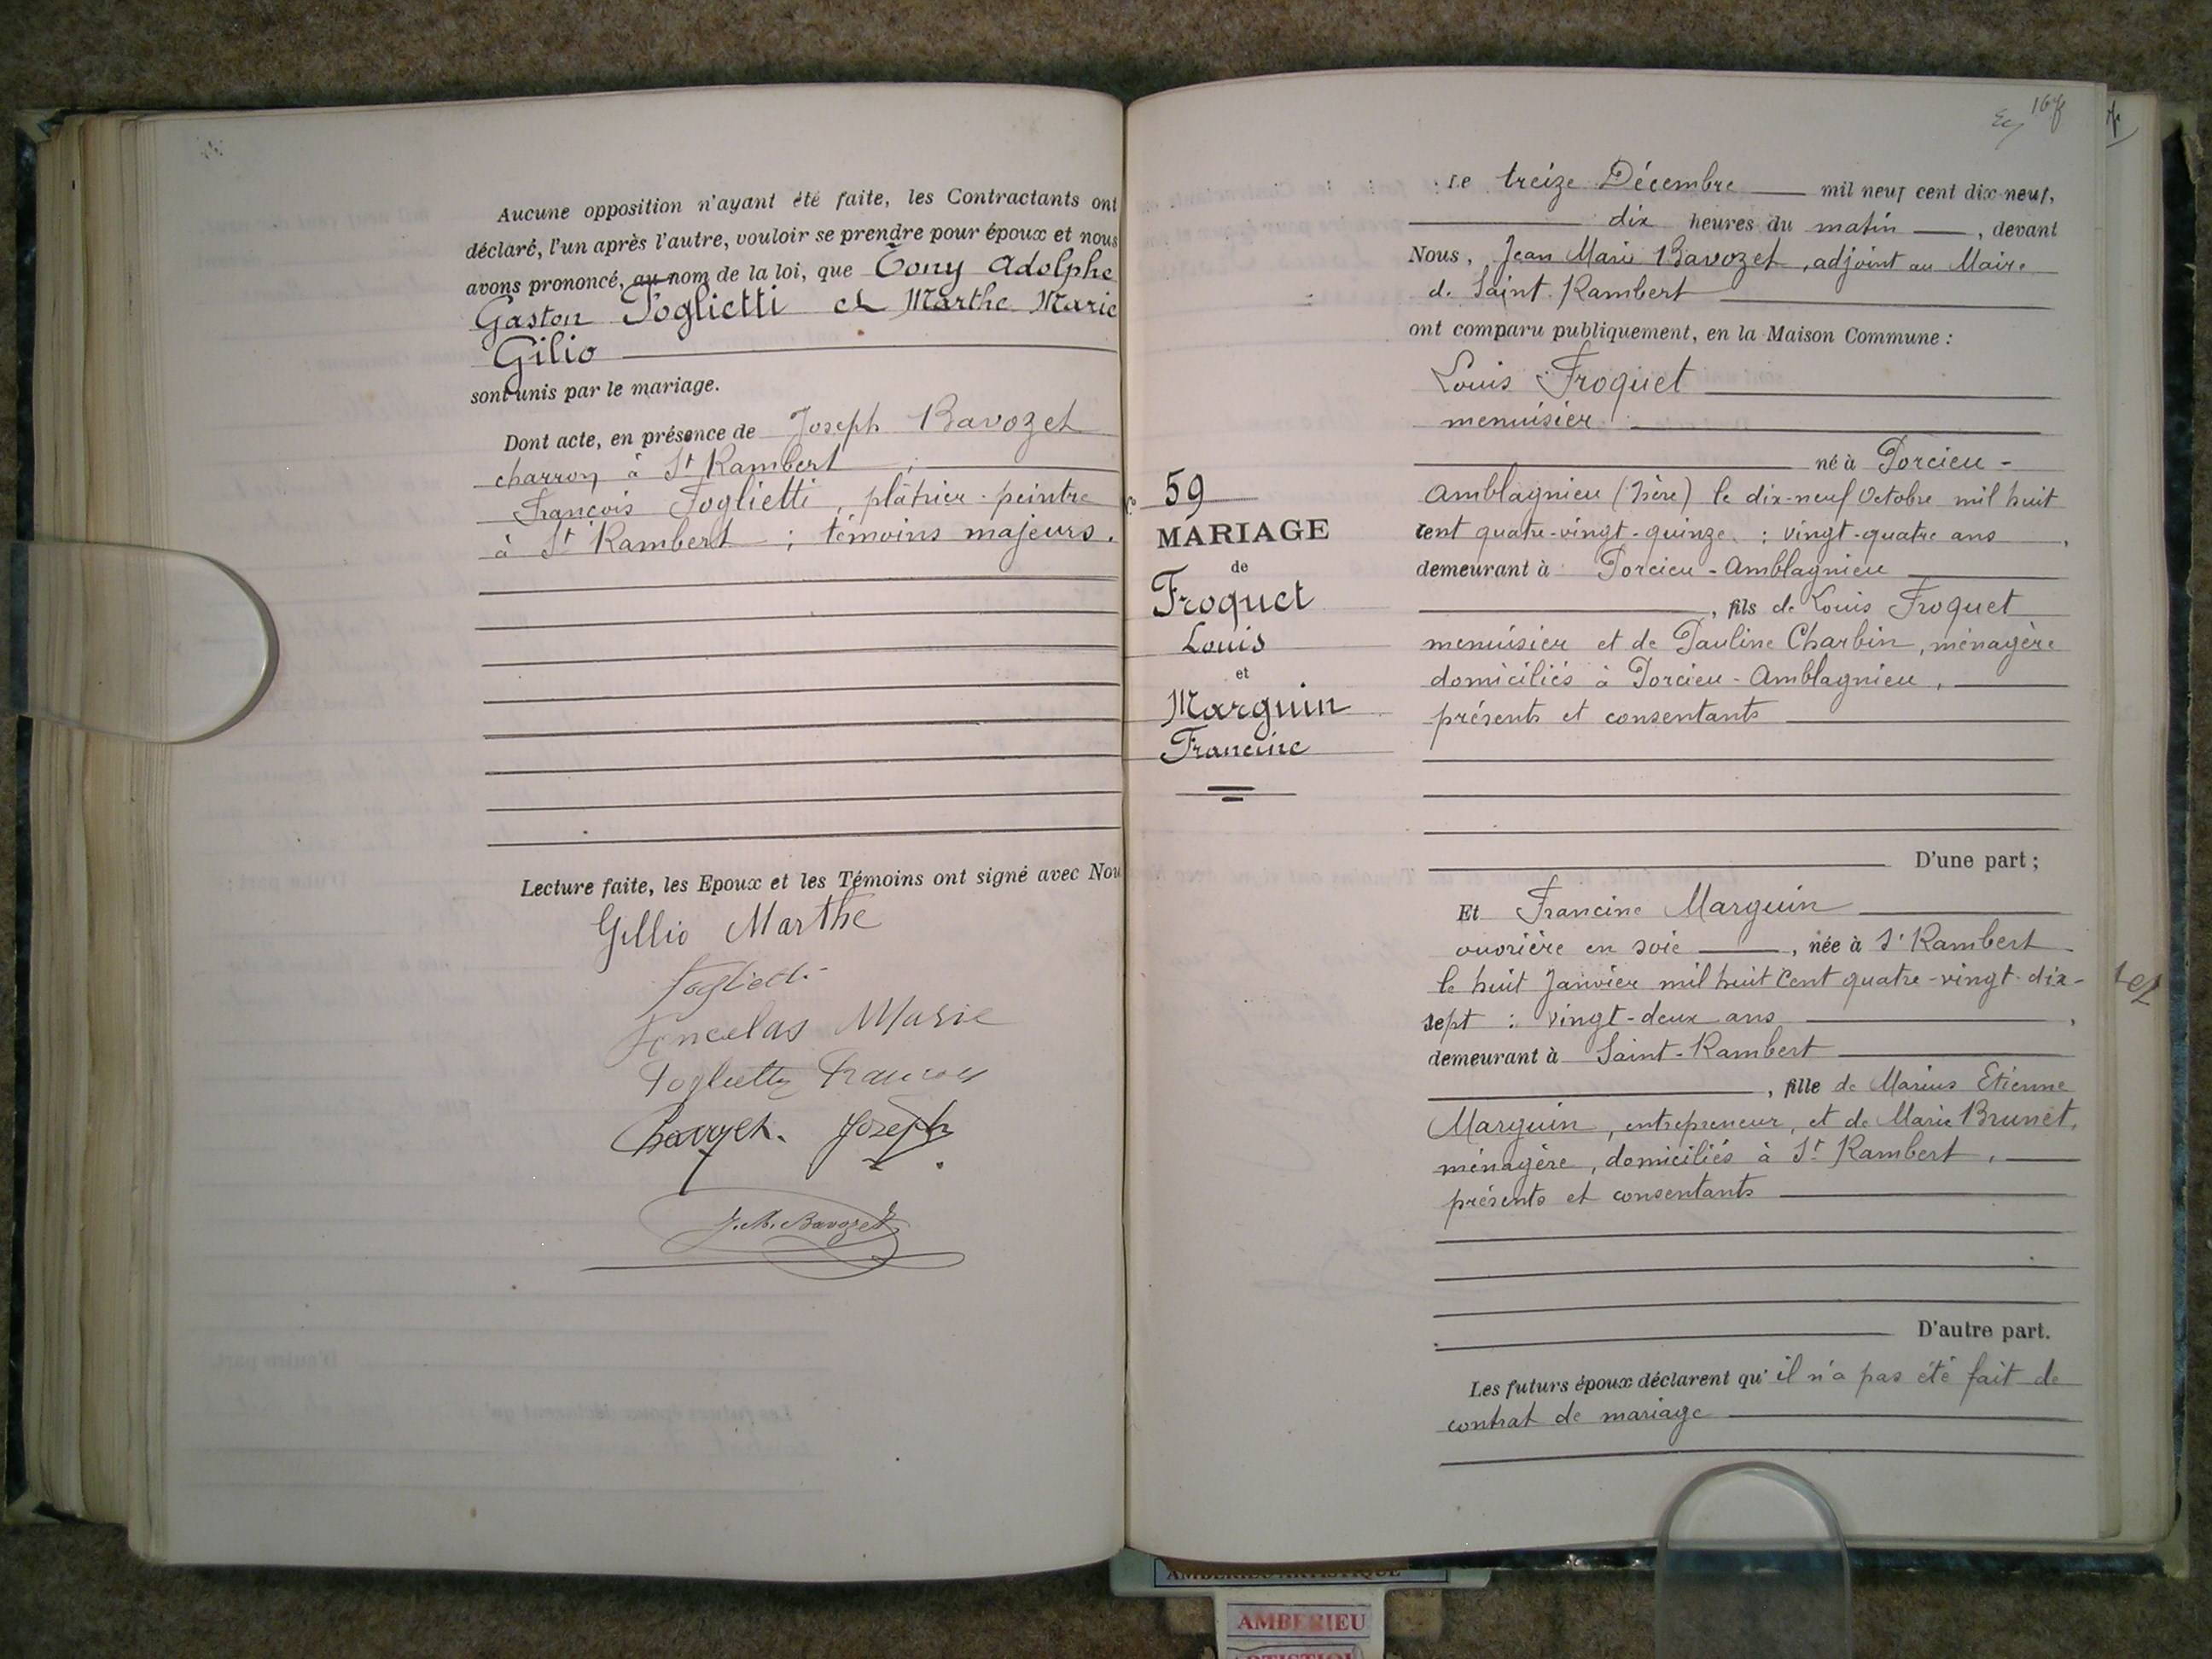 Aucune opposition n'ayant été faite, les Contractants ont
déclaré, l'un après l'autre, vouloir se prendre pour époux et nous
avons prononcé, au nom de la loi, que Tony Adolphe
Gaston Foglietti et Marthe Marie
Gilio
sont unis par le mariage.
Dont acte, en présence de Joseph Bavozet
charron à St Rambert ;
François Foglietti, plâtrier-peintre
à St Rambert ; témoins majeurs.
Lecture faite, les Epoux et les Témoins ont signé avec Nou
Gillio Marthe
Foglietti
Marie
Foglietti François
Bavozet Joseph
J.M. Bavozet
167
Le treize Décembre mil neuf cent dix-neuf,
dix heures du matin, devant
Nous, Jean Marie Bavozet, adjoint au Maire
de Saint-Rambert
ont comparu publiquement, en la Maison Commune :
Louis Froquet
menuisier
né à Porcieu-
Amblagnieu (Isère) le dix-neuf Octobre mil huit
cent quatre-vingt-quinze : vingt-quatre ans,
demeurant à Porcieu-Amblagnieu
, fils de Louis Froquet
menuisier et de Pauline Charbin, ménagère
domiciliés à Porcieu-Amblagnieu,
présents et consentants
D'une part ;
59
MARIAGE
de
Froquet
Louis
et
Marguin
Francine
Et Francine Marguin
ouvrière en soie, née à St Rambert
le huit Janvier mil huit cent quatre-vingt-dix-
sept : vingt-deux ans,
demeurant à Saint-Rambert
, fille de Marius Etienne
Marguin, entrepreneur, et de Marie Brunet,
ménagère, domiciliés à St Rambert,
présents et consentants
D'autre part.
Les futurs époux déclarent qu'il n'a pas été fait de
contrat de mariage
AMBERIEU ARTISTIQUE
AMBERIEU